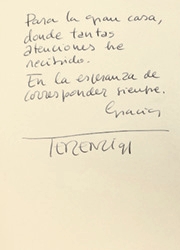 Para la gran casa,
donde tantas
atenciones he
recibido.
En la esperanza de
corresponder siempre.
Gracias
TERENCI 91